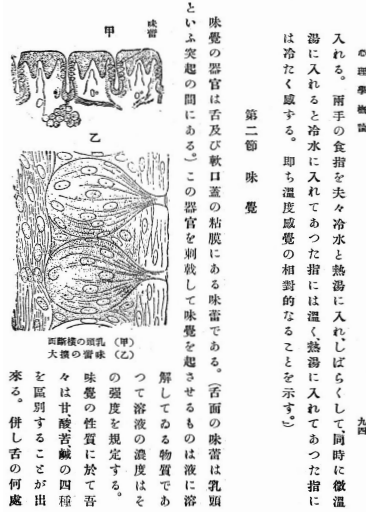 心理學概論
九四
入れる。兩手の食指を夫々冷水と熱湯に入れ、しばらくして、同時に微溫
湯に入れると冷水に入れてあつた指には溫く、熱湯に入れてあつた指に
は冷たく感ずる。卽ち溫度感覺の相對的なることを示す。)
第二節 味覺
味覺の器官は舌及び軟口蓋の粘膜にある味蕾である。(舌面の味蕾は乳頭
といふ突起の間にある。)この器官を刺戟して味覺を起させるものは液に溶
解してゐる物質であ
つて溶液の濃度はそ
の强度を規定する。
味覺の性質に於て吾
々は甘、酸、苦、鹹の四種
を區別することが出
來る。併し舌の何處
味蕾
甲
乙
(甲)乳頭の橫斷面
(乙)味蕾の擴大